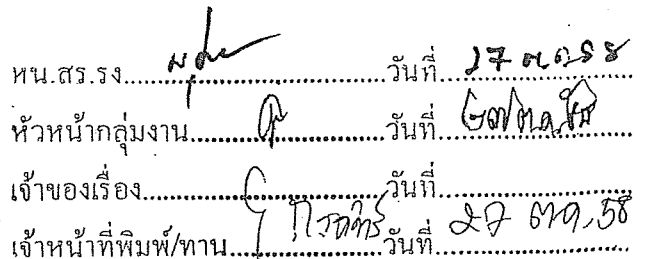 หน.สร.รง..............................วันที่ 27 ต.ค.58
หัวหน้ากลุ่มงาน..............................วันที่ ๒๗ ต.ค. ๕๘
เจ้าของเรื่อง..............................วันที่..............................
เจ้าหน้าที่พิมพ์/ทาน..............................วันที่ 27 ต.ค. 58